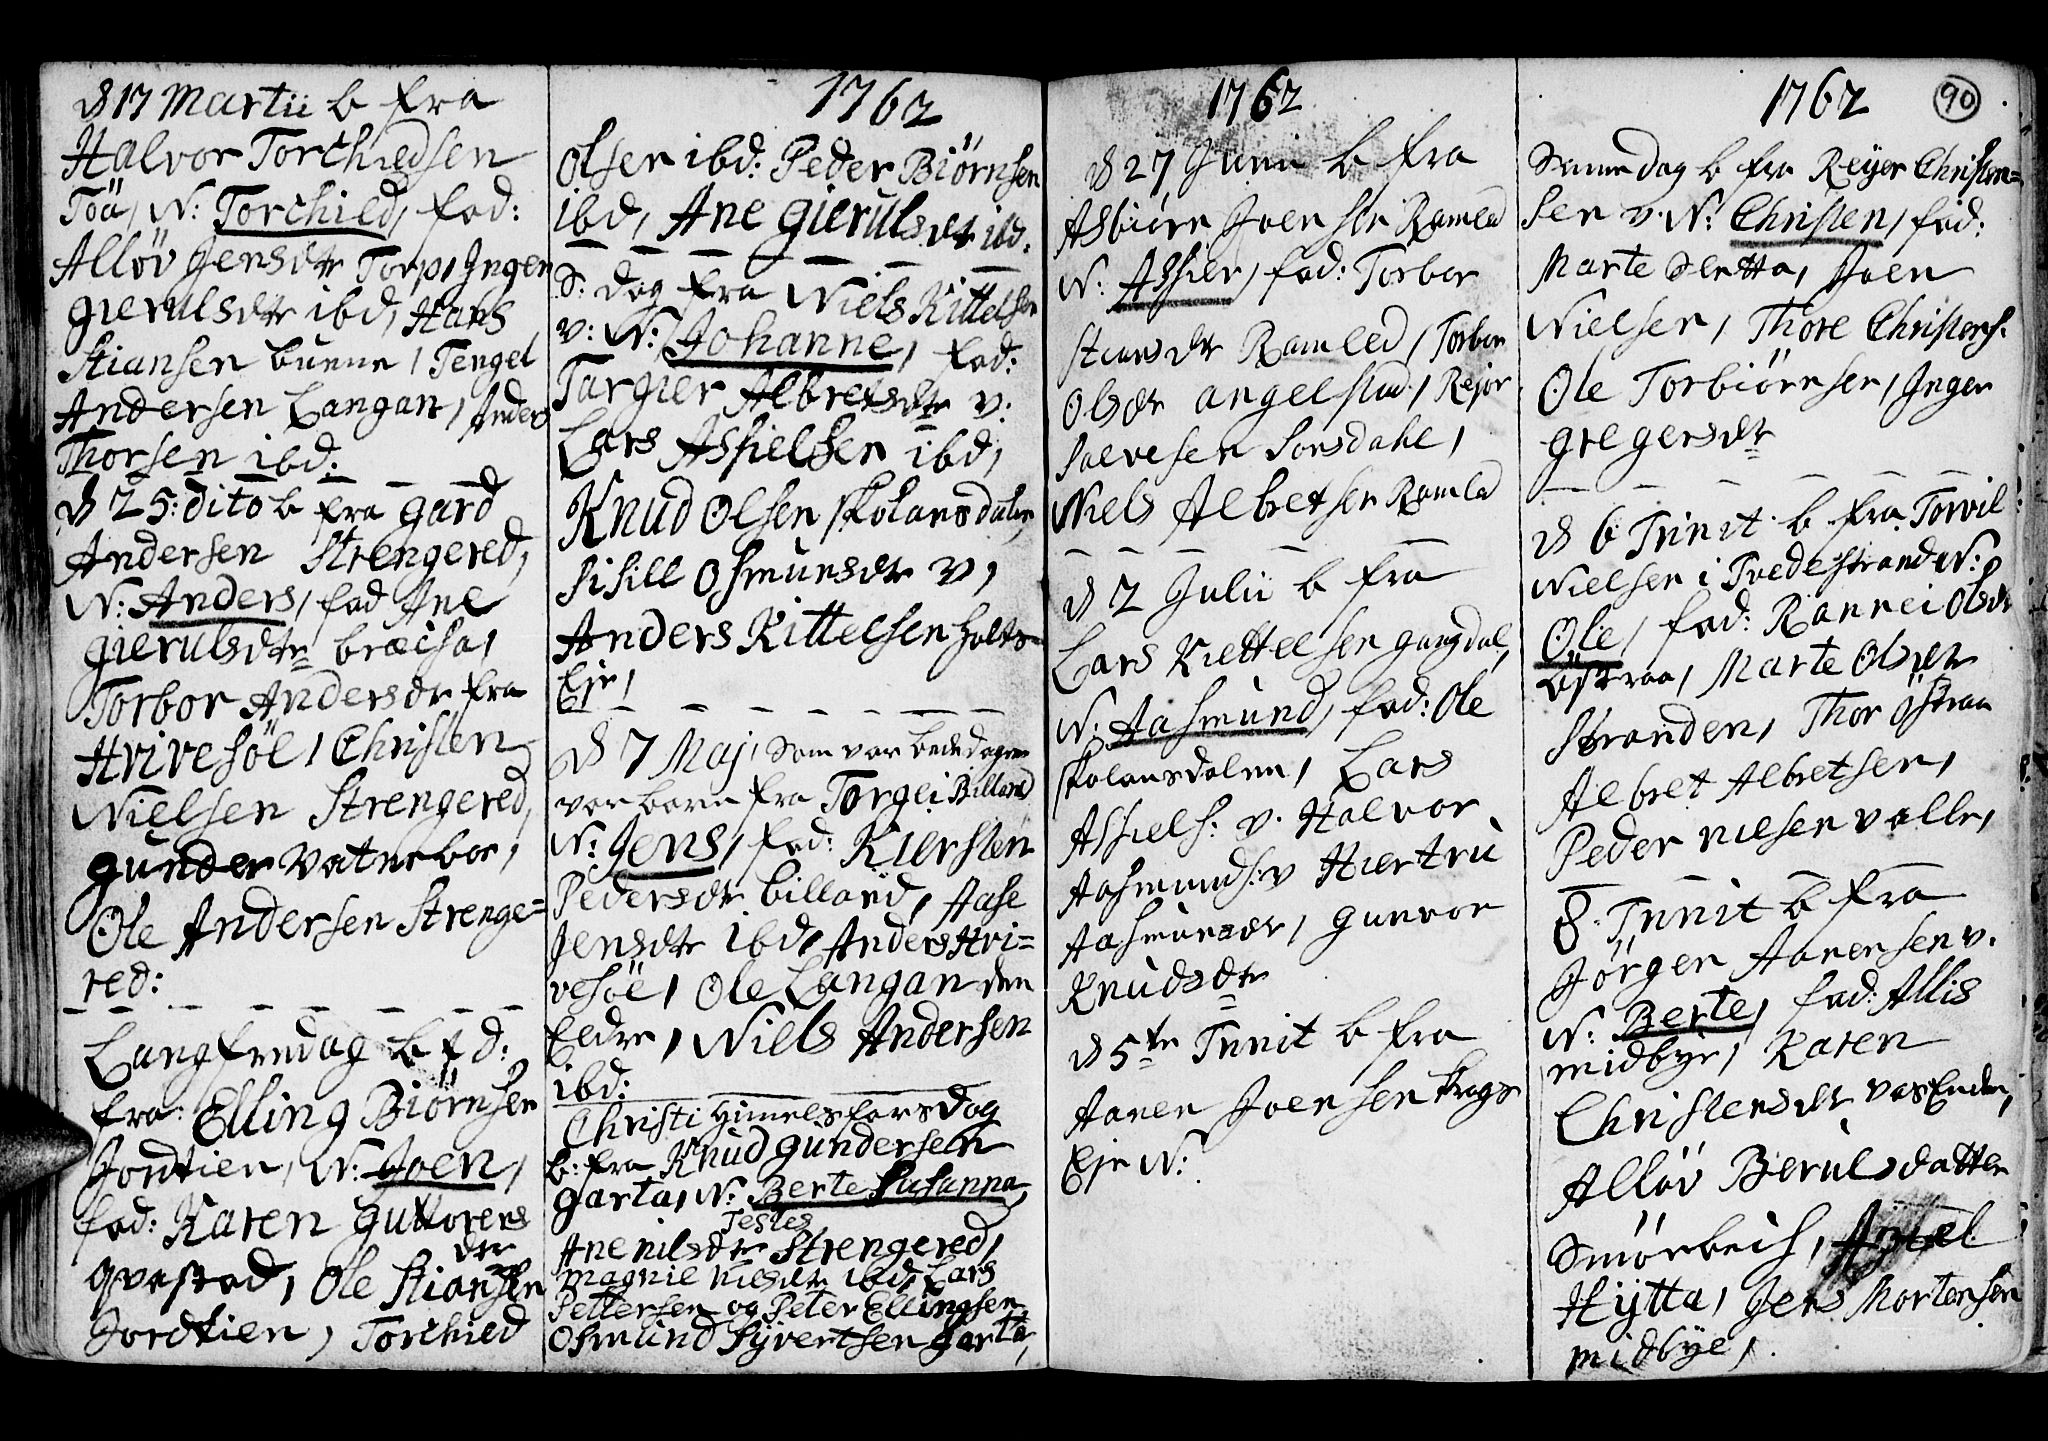 D 17 Martii b fra
Halvor Torchildsen
Töa, N: Torchild, fad:
Alløv Jensdtr Torp, Inger
gierulsdtr ibd, Hans
Stiansen buene, Tengel
Andersen Langan, Anders
Thorsen ibd:
D 25: dito b fra gard
Andersen Strengered,
N: Anders, fad Ane
gierulsdtr
Torbor Andersdr fra
Hrivesöl, Christen
Nielsen Strengered,
gunder Vatneboe,
Ole Andersen Strenge=
red:
Langfredag b f d:
fra: Elling Biörnsen
Jordtien, N: Joen,
fad: Karen guttorens
dtr
qvestad, Ole Stiansen
Jordtien, Torchild
1762
Olsen ibd: Peder Biørnsen
ibd, Ane gierulsdtr ibd.
S: dag fra Niels Kittelsen
v: N: Johanne, fad:
Targier Albretsdtr v:
Lars Asfielsen ibd,
Knud Olsen skolansdalen,
Sisill Osmunsdtr v,
Anders Kittelsen holts
Eje,
D 7 Maj, som var bededagen
var barn fra Torgei Billand
N: Jens, fad: Kiersten
Pedersdtr billand, Aase
Jensdtr ibd, Anders Hri=
vesöl, Ole Langan den
Eldre, Niels Andersen
ibd:
Christi Himelsfarsdag
b: fra Knud gundersen
garta, N: Berte Susanna,
Testes
Ane nilsdtr Strengered,
magnil nilsdtr ibd, Lars
Pettersen og Peter Ellingsen
Osmund Syvertsen garta,
1762
D 27 Junii b fra
Asbiørn Joensen Ramled
N: Asfier, fad: Torbor
stiansdtr Ramled, Torbor
Olsdtr angelstad, Rejer
salvesen
Niels Albretsen Ramled
D 2 Julii b fra
Lars Kiettelsen gangdal,
N: Aasmund, fad: Ole
skolansdalen, Lars
Asfiels: v. Halvor
Aasmunds: v Hiertrù
Aasmunsdtr, gunvor
Knudsdtr
D 5te Trinit b fra
Aanen Joensen
Eje N:
1762
90
Samme dag b fra Reyer Christen=
sen v. N: Christen, fad:
Marte Sletta, Joen
Nielsen, Thore Christens:
Ole Torbiörnsen, Inger
gregersdtr
D 6 Trinit b fra Torvil
Nielsen i Tvedestrand N:
Ole, fad: Rannei Olsdtr
östraa, Marte Olsdtr
Stranden, Thor östraa
Albret Albretsen,
Peder nilsen valle,
8: Trinit b fra
Jörgen Aanensen v.
N: Berte, fad: Allis
midbye, Karen
Christensdtr vasEnden,
Alløv Berulsdatter
Smörbech, Axsel
Hytta, Jens Mortensen
midbye,